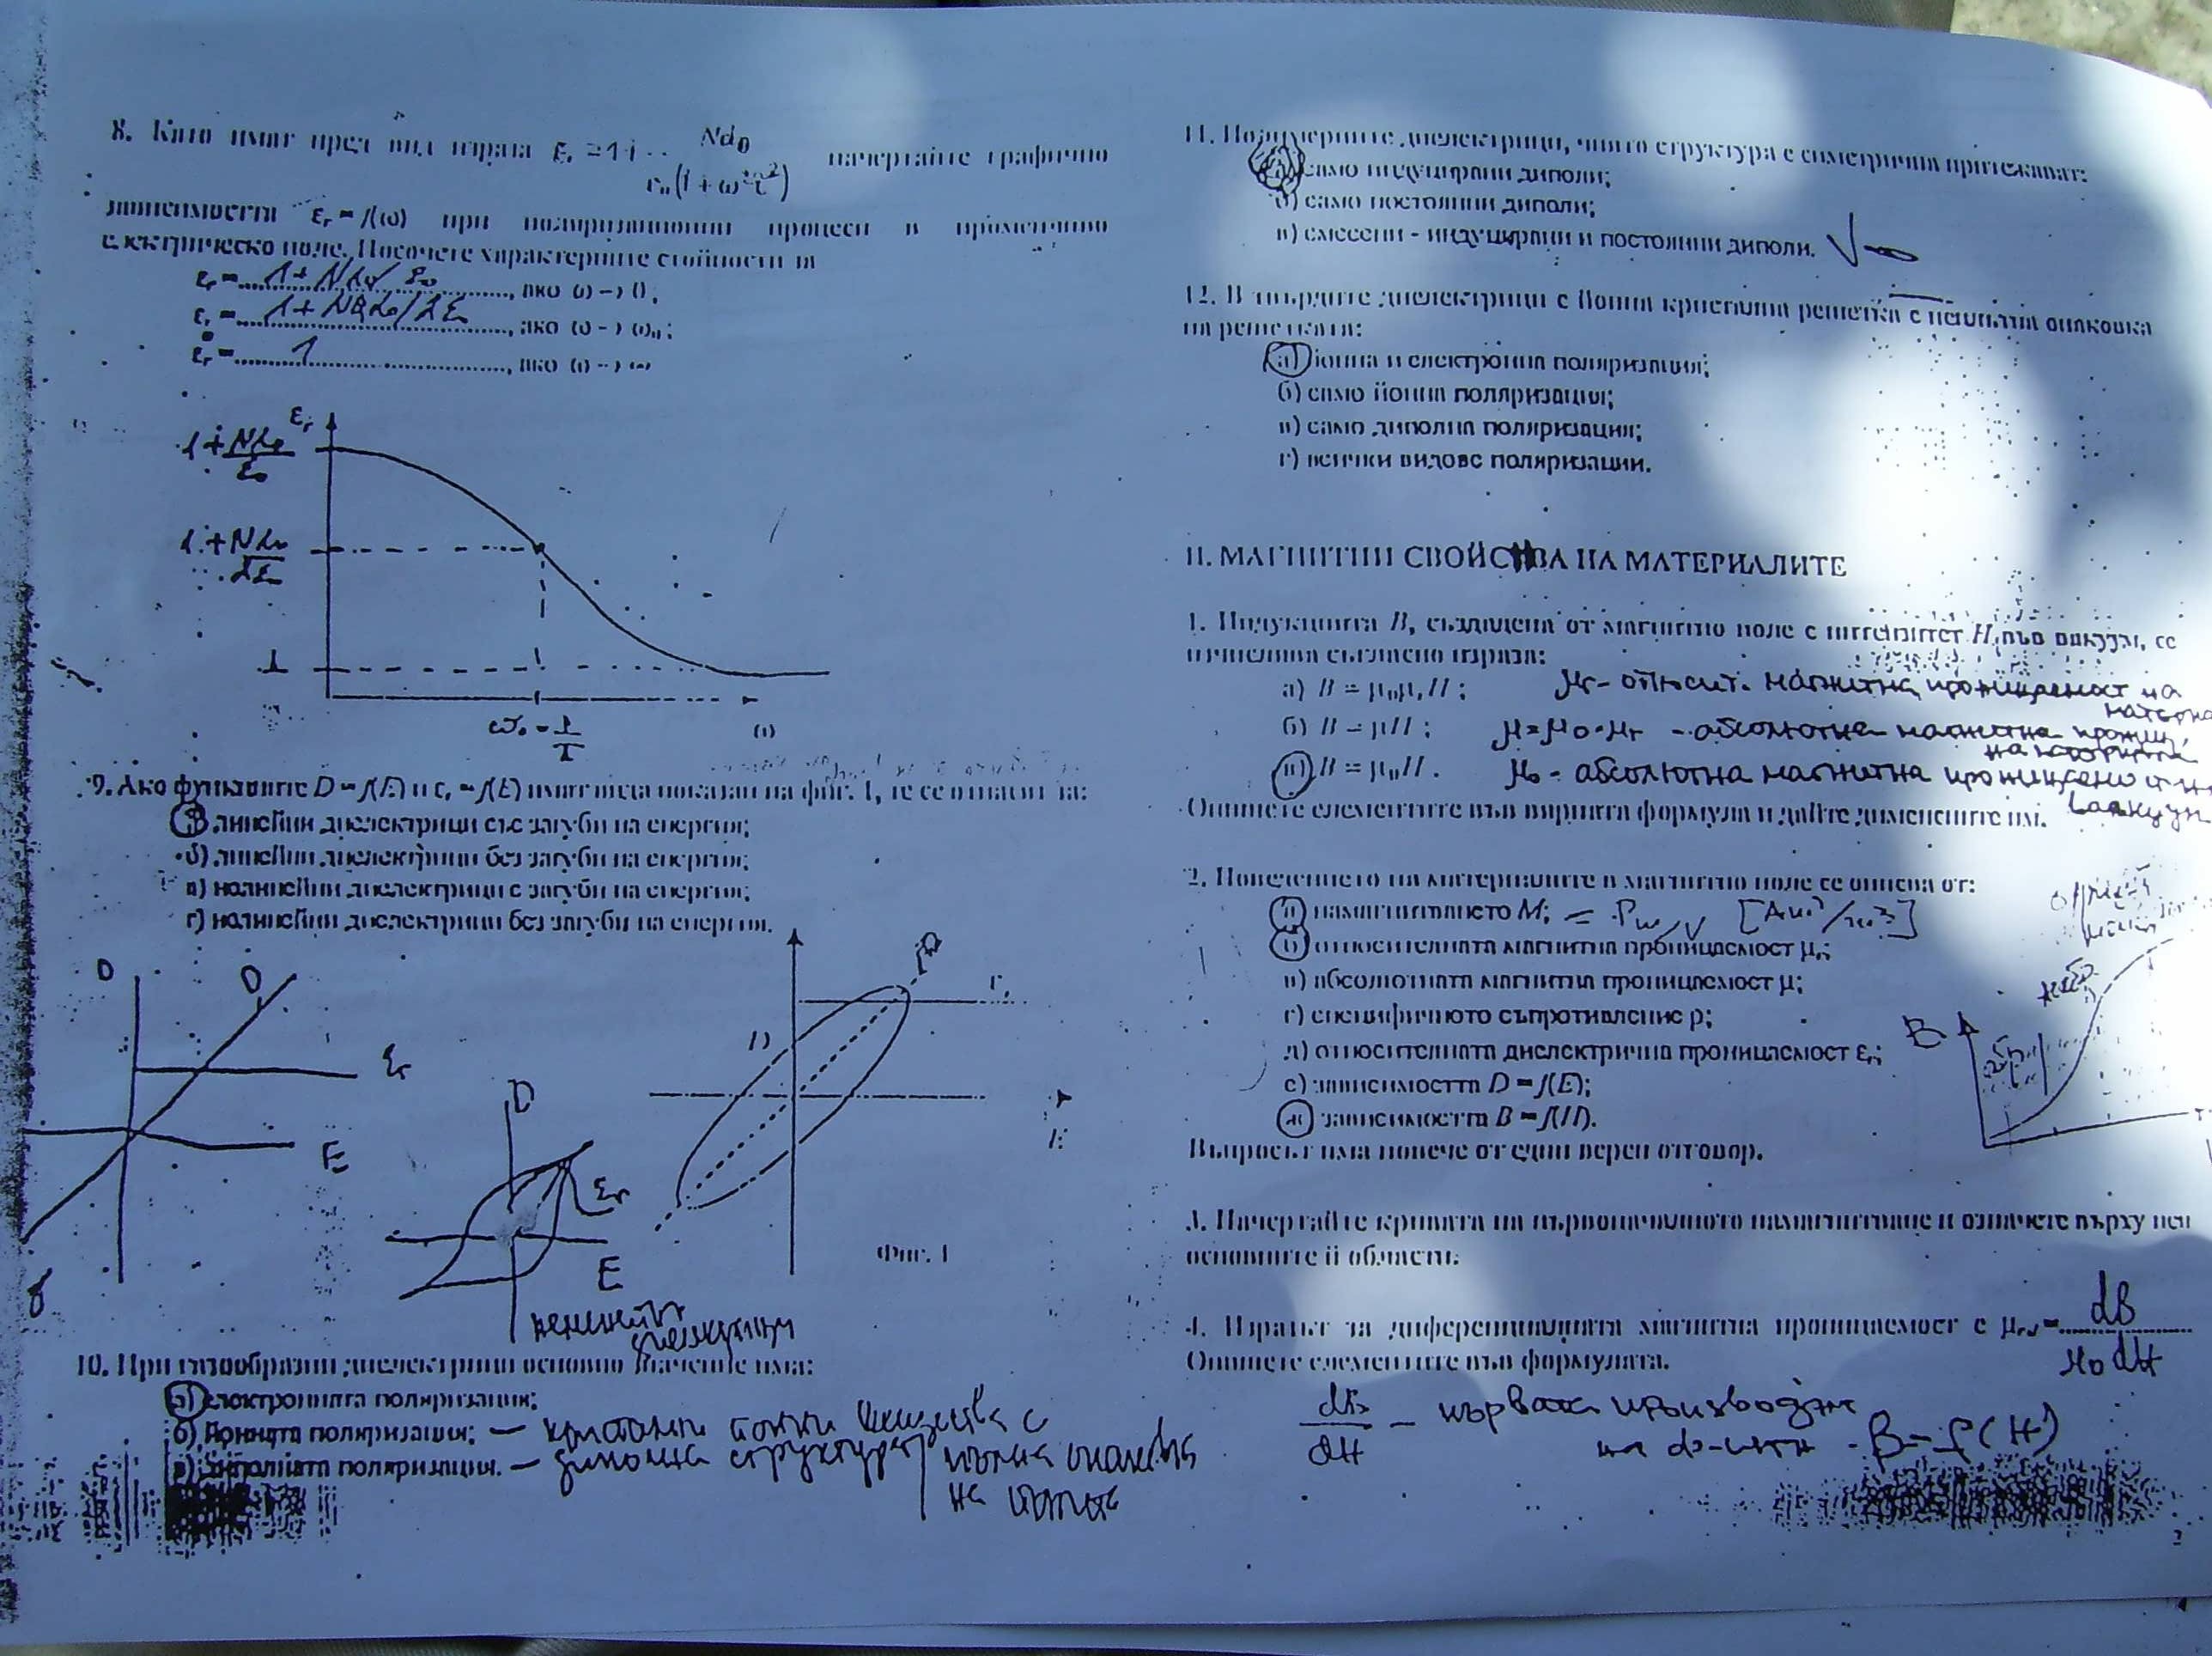 8. Като имат пред вид израза εr = 1 + Nα0 начертайте графично
ε0(1+ω²τ²)
зависимостта εr = f(ω) при поляризационни процеси в променливо
електрическо поле. Посочете характерните стойности на
εr = 1+Nα0/ε0, ако ω → 0;
εr = 1+Nα0/2ε, ако ω → ω0;
εr = 1, ако ω → ∞
εr
1+Nα0
ε0
1+Nα0
2ε
1
ω0 = 1
τ
ω
9. Ако функциите D = f(E) и εr = f(E) имат вида показан на фиг. 1, те се отнасят за:
а) линейни диелектрици със загуби на енергия;
б) линейни диелектрици без загуби на енергия;
в) нелинейни диелектрици с загуби на енергия;
г) нелинейни диелектрици без загуби на енергия.
D
D
εr
E
б
D
εr
E
D
D
εr
E
Фиг. 1
10. При газообразни диелектрици основно значение има:
а) електронната поляризация;
б) йонната поляризация; — кристални йонни вещества с
в) диполната поляризация. — структура
11. Полимерните диелектрици, чиято структура е симетрична притежават:
а) само индуцирани диполи;
б) само постоянни диполи;
в) смесени - индуцирани и постоянни диполи.
12. В твърдите диелектрици с йонна кристална решетка с непълна опаковка
на решетката:
а) йонна и електронна поляризация;
б) само йонна поляризация;
в) само диполна поляризация;
г) всички видове поляризации.
II. МАГНИТНИ СВОЙСТВА НА МАТЕРИАЛИТЕ
1. Индукцията B, създадена от магнитно поле с интензитет H във вакуум, се
изчислява съгласно израза:
а) B = μ0μrH; μr - относит. магнитна проницаемост на
б) B = μH; μ=μ0·μr - абсолютна магнитна прониц.
в) B = μ0H. μ0 - абсолютна магнитна проницаемост на
вакуум
Опишете елементите във вярната формула и дайте дименсиите им.
2. Поведението на материалите в магнитно поле се описва от:
а) намагнитването M; = Pm/V [Am²/m³]
б) относителната магнитна проницаемост μr;
в) абсолютната магнитна проницаемост μ;
г) специфичното съпротивление ρ;
д) относителната диелектрична проницаемост εr;
е) зависимостта D = f(E);
ж) зависимостта B = f(H).
B
Въпросът има повече от един верен отговор.
3. Начертайте кривата на първоначалното намагнитване и означете върху нея
основните ѝ области.
4. Изразът за диференциалната магнитна проницаемост е μrd = dB
μ0 dH
Опишете елементите във формулата.
dB
dH — първата производна
на ф-цията B=f(H)